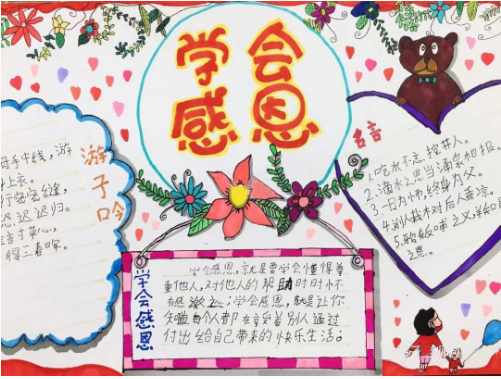 学会
感恩
游子吟
母手中线，游
上衣。
行密密缝，
恐迟迟归。
言寸草心，
得三春晖。
名言
1.吃水不忘挖井人。
2.滴水之恩当涌泉相报。
3.一日为师，终身为父。
4.别人栽树后人乘凉。
5.
之恩。
学会感恩
学会感恩，就是要学会懂得尊
重他人，对他人的帮助时时怀
有感激之心；学会感恩，就是让你
知道每个人都在享受着别人通过
付出给自己带来的快乐生活。